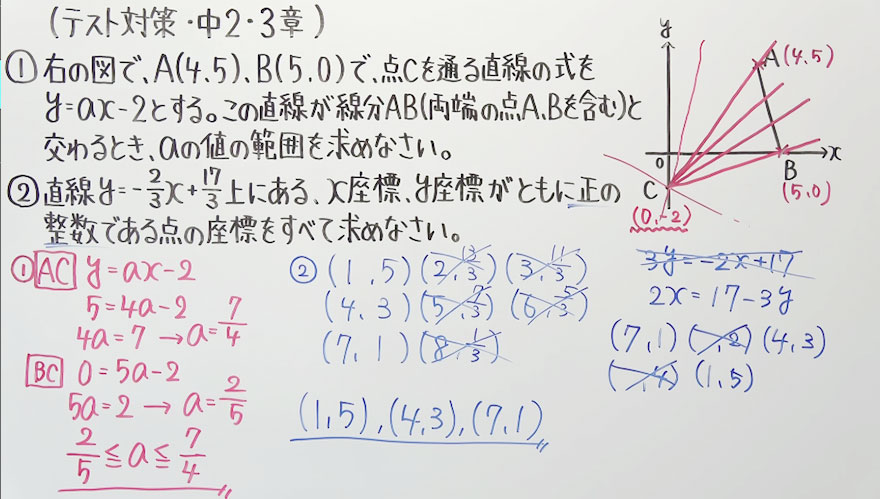 (テスト対策・中2・3章)
① 右の図で、A(4.5)、B(5.0)で、点Cを通る直線の式を
y=ax-2とする。この直線が線分AB(両端の点A、Bを含む)と
交わるとき、aの値の範囲を求めなさい。
② 直線y=-2/3x+17/3上にある、x座標、y座標がともに正の
整数である点の座標をすべて求めなさい。
y
A(4.5)
0
x
B
(5.0)
C
(0,-2)
① AC y=ax-2
5=4a-2
4a=7 → a=7/4
BC 0=5a-2
5a=2 → a=2/5
2/5≦a≦7/4
② (1,5) (2,13/3) (3,11/3)
(4,3) (5,7/3) (6,5/3)
(7,1) (8,1/3)
(1,5),(4,3),(7,1)
3y=-2x+17
2x=17-3y
(7,1) ( ,2) (4,3)
( ,4) (1,5)